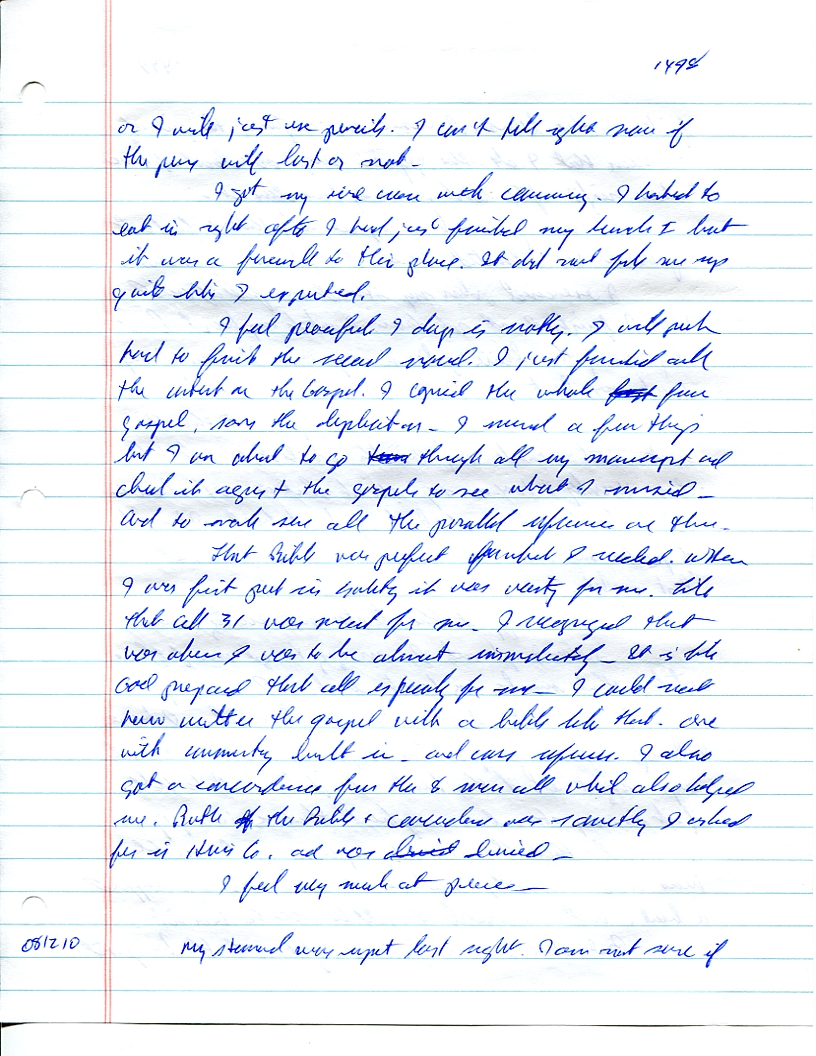 1498
or I will just use pencils. I can't tell right now if
the pens will last or not -
I got my rice even with canning. I hated to
eat it right after I had just finished my lunch but
it was a farewell to this place. It did not fill me up
quite like I expected.
I feel peaceful I days is nothing. I will push
hard to finish the second novel. I just finished all
the on the Gospel. I copied the whole four
gospel, save the duplication - I missed a few things
but I am about to go through all my manuscript and
check it against the gospels to see what I missed -
and to make sure all the parallel references are there.
That Bible was perfect I needed. When
I was first put in it was waiting for me. Like
that cell 31 was meant for me. I recognized that
was where I was to be almost immediately - It is like
God prepared that cell especially for me - I could not
have written the gospel with a bible like that. one
with commentary built in - and cross references. I also
got a concordance from the 8 man cell which also helped
me. Both of the Bible + concordance was something I asked
for in Co. and was denied -
I feel very much at peace -
081210
my stomach was upset last night. I am not sure if